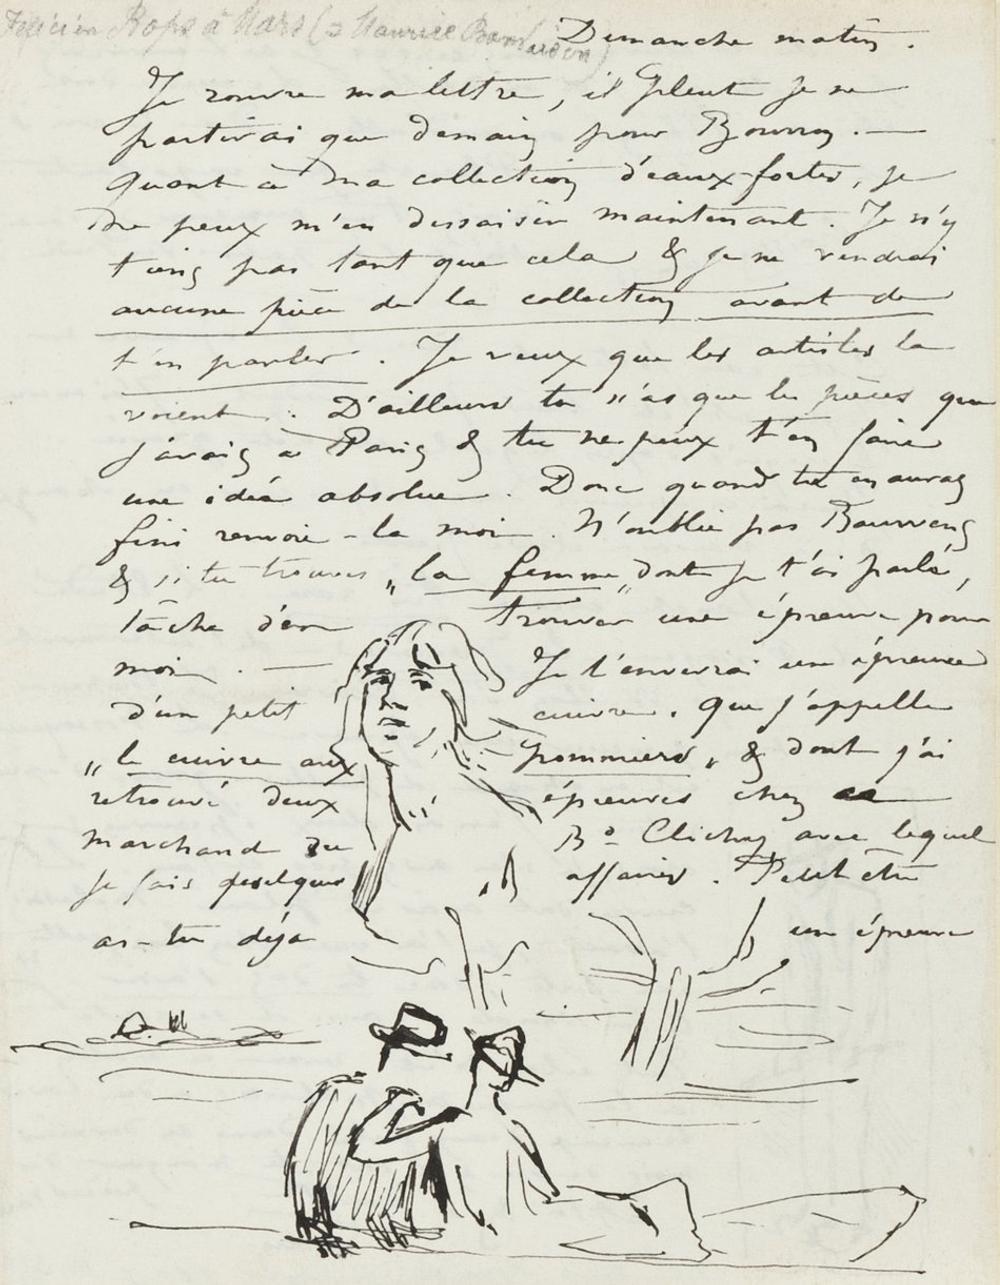 Félicien Rops à Mars (= Maurice Bonvoisin)
Dimanche matin.
Je rouvre ma lettre, il pleut je ne
partirai que demain pour Bourron. —
Quant à ma collection d'eaux-fortes, je
ne peux m'en dessaisir maintenant. Je n'y
tiens pas tant que cela & je ne vendrai
aucune pièce de la collection avant de
t'en parler. Je veux que les artistes la
voient. D'ailleurs tu n'as que les pièces que
j'avais à Paris & tu ne peux t'en faire
une idée absolue. Donc quand tu en auras
fini renvoie-la moi. N'oublie pas
& si tu trouves „la femme„ dont je t'ai parlé,
tâche d'en trouver une épreuve pour
moi. — Je t'enverrai une épreuve
d'un petit cuivre. que j'appelle
„le cuivre aux pommiers„ & dont j'ai
retrouvé deux épreuves chez
marchand du Bd Clichy avec lequel
je fais quelques affaires. Peut être
as-tu déjà une épreuve